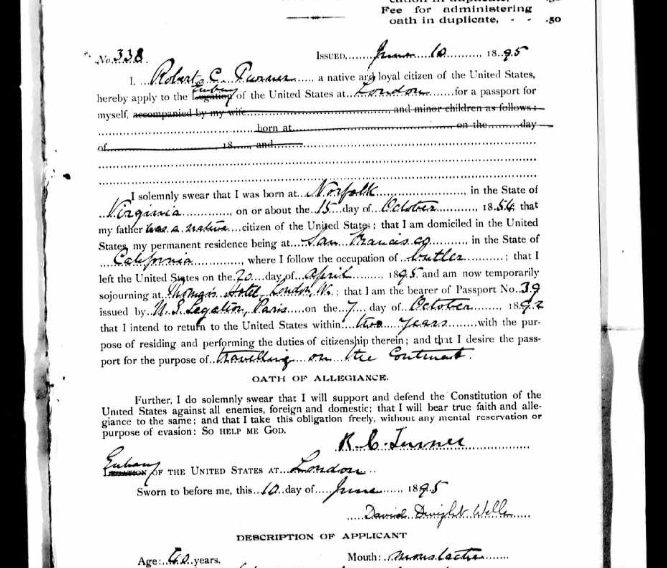 cation in duplicate,
Fee for administering
oath in duplicate, - - .50
No. 338 ISSUED, June 10 1895
I, Robert C. Turner a native and loyal citizen of the United States,
hereby apply to the Legation Embassy of the United States at London for a passport for
myself, accompanied by my wife, and minor children as follows:
born at on the day
of 18 , and
I solemnly swear that I was born at Norfolk, in the State of
Virginia, on or about the 15 day of October, 1854, that
my father was a native citizen of the United States; that I am domiciled in the United
States, my permanent residence being at San Francisco, in the State of
California, where I follow the occupation of butler; that I
left the United States on the 20 day of April 1895 and am now temporarily
sojourning at Thomas's Hotel, London, W.; that I am the bearer of Passport No. 39
issued by U.S. Legation, Paris on the 7 day of October, 1892
that I intend to return to the United States within two years with the pur-
pose of residing and performing the duties of citizenship therein; and that I desire the pass-
port for the purpose of travelling on the Continent.
OATH OF ALLEGIANCE.
Further, I do solemnly swear that I will support and defend the Constitution of the
United States against all enemies, foreign and domestic; that I will bear true faith and alle-
giance to the same; and that I take this obligation freely, without any mental reservation or
purpose of evasion: SO HELP ME GOD.
R. C. Turner
Embassy OF THE UNITED STATES AT London
Sworn to before me, this 10 day of June, 1895
David Dwight Wells
DESCRIPTION OF APPLICANT
Age: 40 years, Mouth: moustache